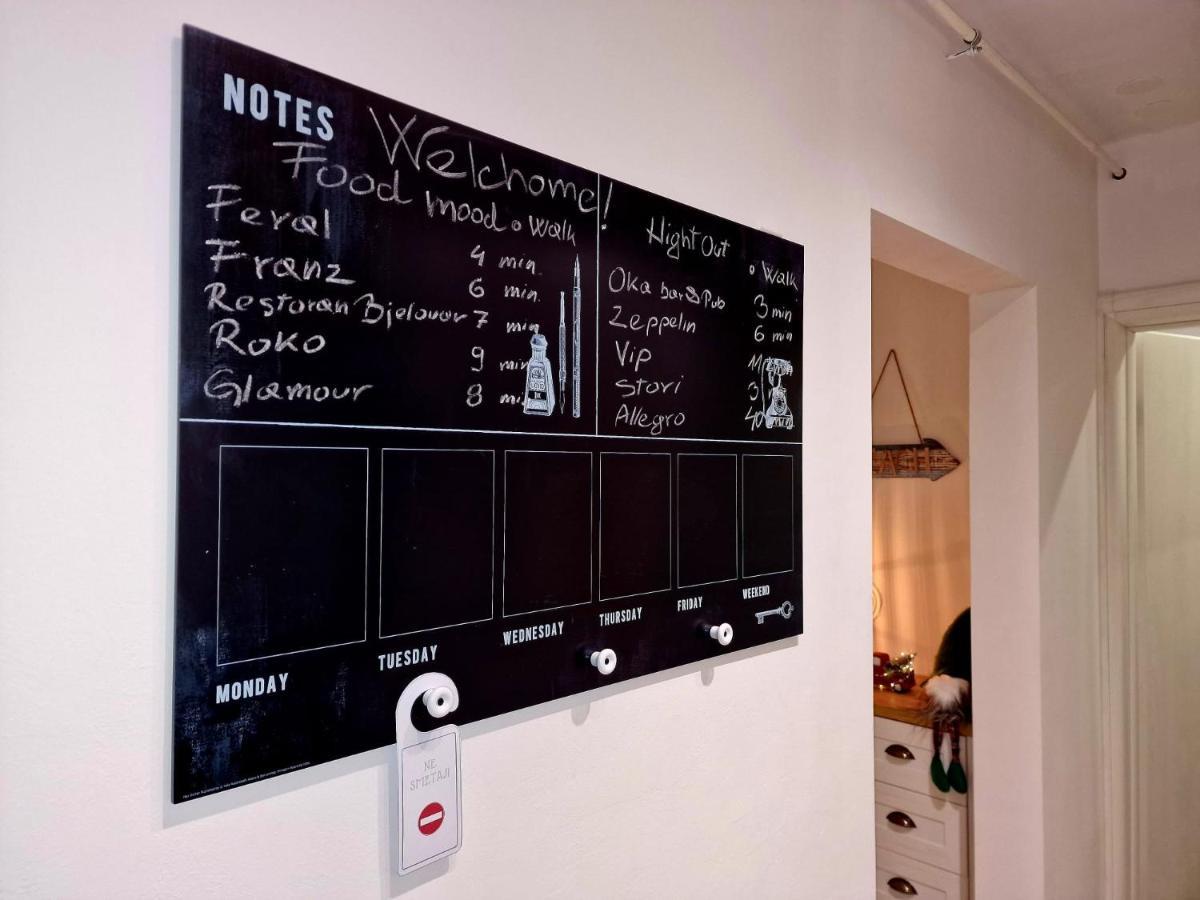 NOTES
Welchome!
Food mood • Walk
Feral 4 min.
Franz 6 min.
Restoran Bjelovar 7 min
Roko 9 min
Glamour 8
Night Out
• Walk
Oka bar & Pub 3 min
Zeppelin 6 min
Vip 11
Stori 3
Allegro
MONDAY
TUESDAY
WEDNESDAY
THURSDAY
FRIDAY
WEEKEND
NE
SMETAJ!